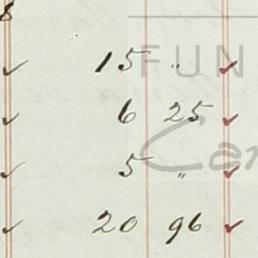 ✓ 15 " ✓
✓ 6 25 ✓
✓ 5 " ✓
✓ 20 96 ✓
FUN
Car